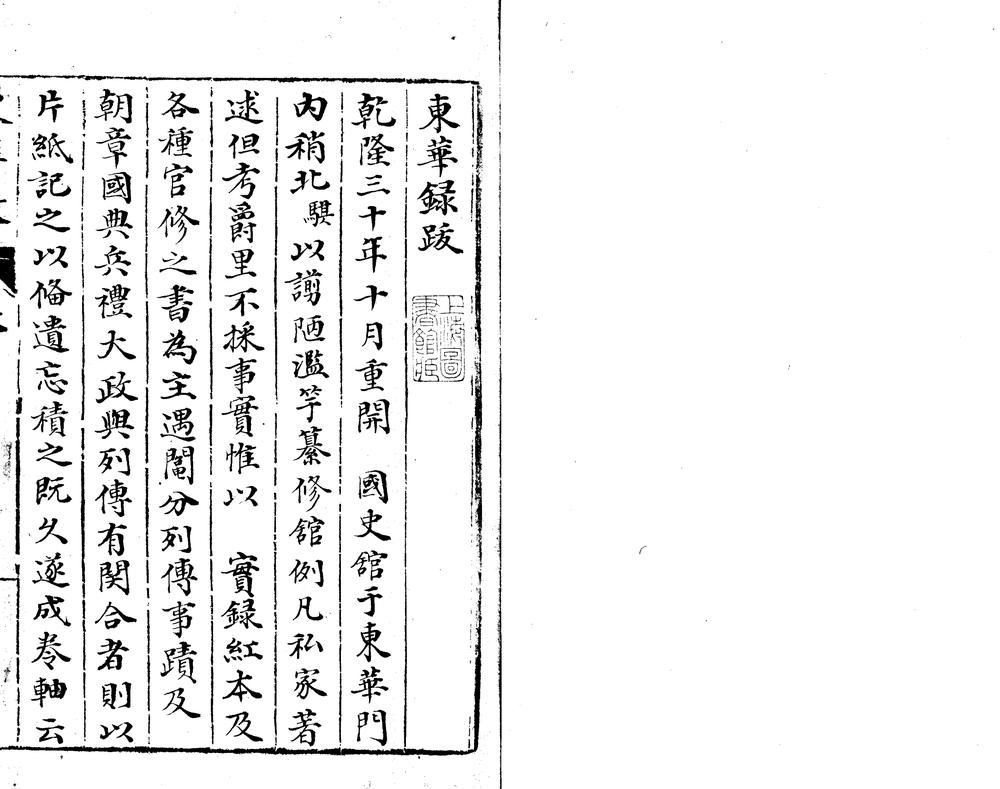 東華録跋
上海圖書館藏
乾隆三十年十月重開　國史舘于東華門
内稍北騏以謭陋濫竽纂修舘例凡私家著
述但考爵里不採事實惟以　實録紅本及
各種官修之書為主遇闔分列傳事蹟及
朝章國典兵禮大政與列傳有関合者則以
片紙記之以俻遺忘積之既久遂成卷軸云